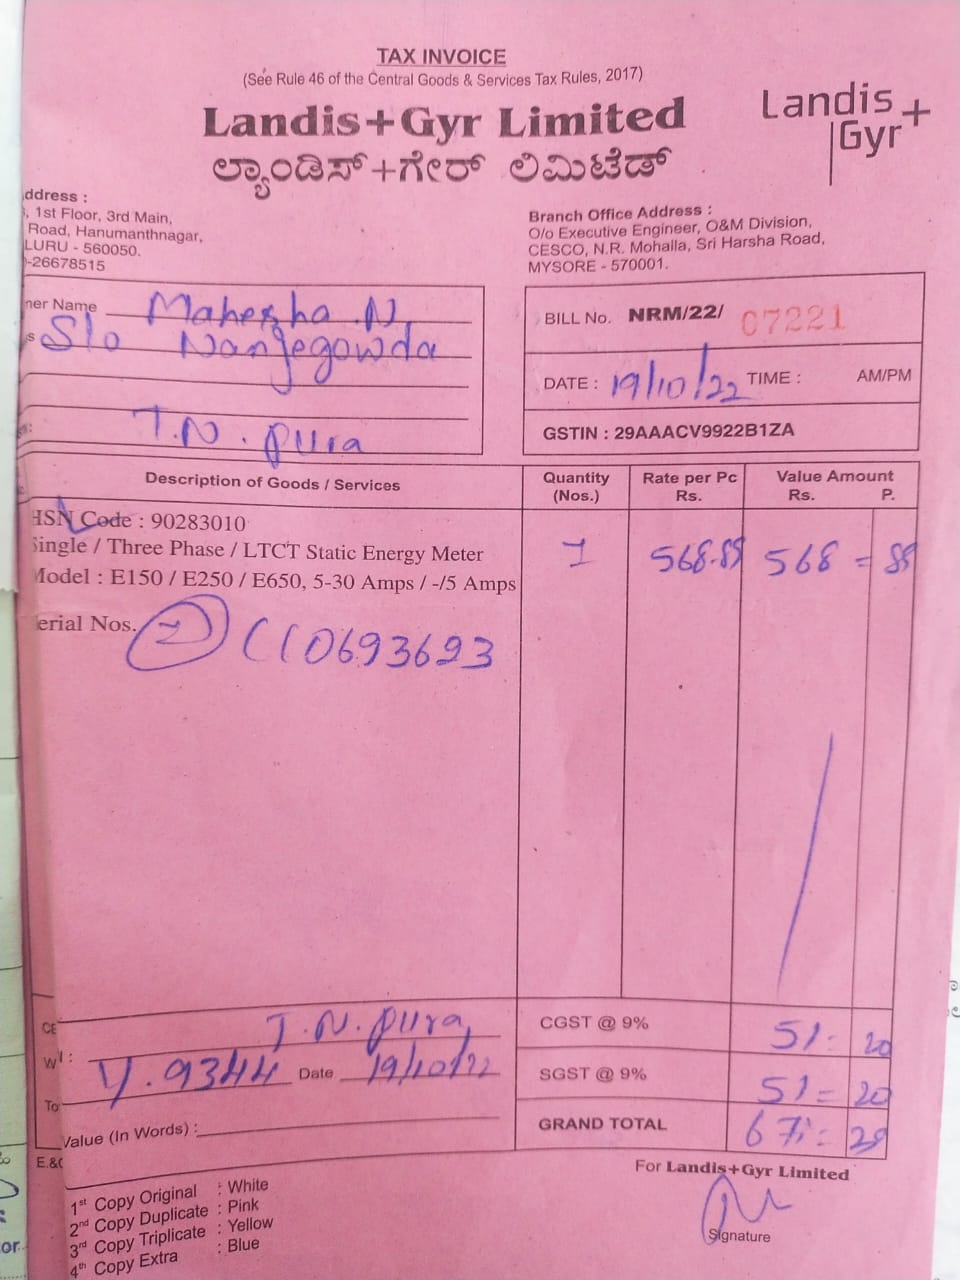 TAX INVOICE
(See Rule 46 of the Central Goods & Services Tax Rules, 2017)
Landis+Gyr Limited
ಲ್ಯಾಂಡಿಸ್+ಗೇರ್ ಲಿಮಿಟೆಡ್
Landis
Gyr+
ddress :
, 1st Floor, 3rd Main,
Road, Hanumanthnagar,
LURU - 560050.
-26678515
Branch Office Address :
O/o Executive Engineer, O&M Division,
CESCO, N.R. Mohalla, Sri Harsha Road,
MYSORE - 570001.
ner Name Mahesha .N,
s S/o Nanjegowda
T.N. pura
BILL No. NRM/22/ 07221
DATE : 19/10/22 TIME : AM/PM
GSTIN : 29AAACV9922B1ZA
Description of Goods / Services Quantity (Nos.) Rate per Pc Rs. Value Amount Rs. P.
HSN Code : 90283010
Single / Three Phase / LTCT Static Energy Meter 1 568.89 568 = 89
Model : E150 / E250 / E650, 5-30 Amps / -/5 Amps
erial Nos. 110693693
CE T.N. pura, CGST @ 9% 51 = 20
W : 9344 Date 19/10/22 SGST @ 9% 51 = 20
To
Value (In Words) : GRAND TOTAL 671 = 29
E.&
For Landis+Gyr Limited
1st Copy Original : White
2nd Copy Duplicate : Pink
3rd Copy Triplicate : Yellow
4th Copy Extra : Blue
Signature
or